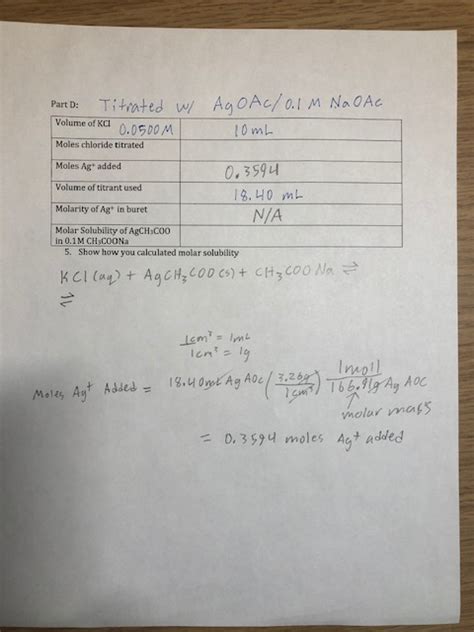 Part D: Titrated w/ AgOAc/0.1 M NaOAc
Volume of KCl 0.0500M 10 mL
Moles chloride titrated
Moles Ag+ added 0.3594
Volume of titrant used 18.40 mL
Molarity of Ag+ in buret N/A
Molar Solubility of AgCH3COO
in 0.1M CH3COONa
5. Show how you calculated molar solubility
KCl (aq) + AgCH3COO (s) + CH3COONa ⇌
⇌
1cm³ = 1mL
1cm³ = 1g
Moles Ag+ Added = 18.40mL AgAOc (3.26g/1cm³) 1mol/166.91g AgAOC
molar mass
= 0.3594 moles Ag+ added